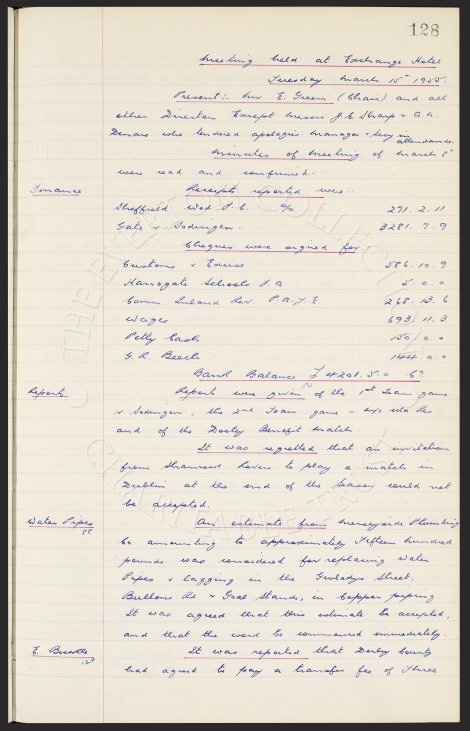 128
Meeting held at Exchange Hotel
Tuesday March 15th 1955.
Present:. Mr E. Green (Chair) and all
other Directors Except Messrs J C Sharp & A. H.
Denaro who tendered apologies Manager & Secy in attendance.
Minutes of Meeting of March 8th
were read and confirmed.
Finance. Receipts reported were:
Sheffield Wed F.C. 271. 2. 11
Gate v Sodingen. 3281. 7. 9
Cheques were signed for
Customs & Excise 586. 10. 9
Harrogate Schools F. A 5. 0. 0
Comm. Inland Rev. P. A. Y. E 268. 13. 6
Wages 693. 11. 3
Petty Cash 150. 0. 0
G. R Beech 144. 0. 0
Bank Balance £ 4201. 5. 0
Reports Reports were given of the 1st Team game
v Sodingen, the 2nd Team game v Utd Res
and of the Dooley Benefit match.
It was regretted that an invitation
from Shamrock Rovers to play a match in
Dublin at the end of the season could not
be accepted.
Water Pipes An estimate from Merseyside Plumbing
88
Co amounting to approximately Fifteen hundred
pounds was considered for replacing water
Pipes & lagging in the Gwladys Street,
Bullens Rd & Goal Stands, in Copper piping
It was agreed that this estimate be accepted,
and that the work be commenced immediately.
E. It was reported that Derby County
had agreed to pay a transfer fee of Three
THE EVERTON COLLECTION
CHARITABLE TRUST